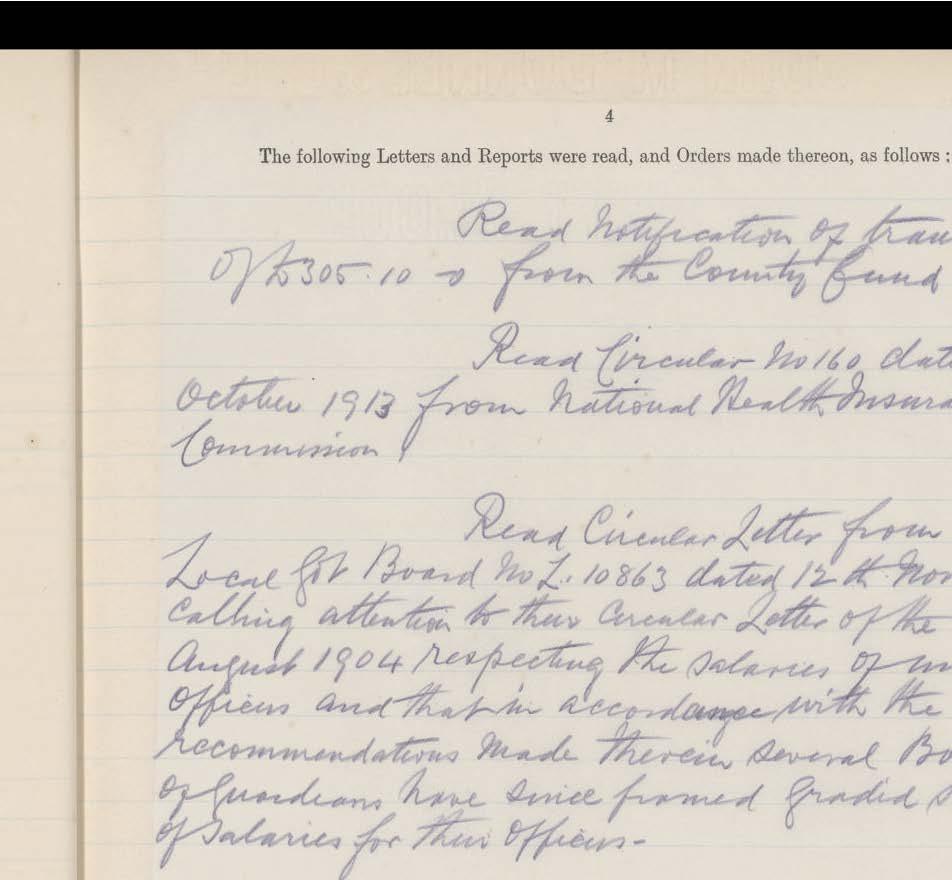 4
The following Letters and Reports were read, and Orders made thereon, as follows :
Read Notification of tran
Of £305.10 - 0 from the County fund
Read Circular No 160 dat
October 1913 from National Health Insura
Commission
Read Circular Letter from
Local Gvt Board No L. 10863 dated 12th Nov
calling attention to their Circular Letter of the
August 1904 respecting the salaries of
Officers and that in accordance with the
recommendations made therein several Bo
of Guardians have since framed graded s
of Salaries for their Officers -